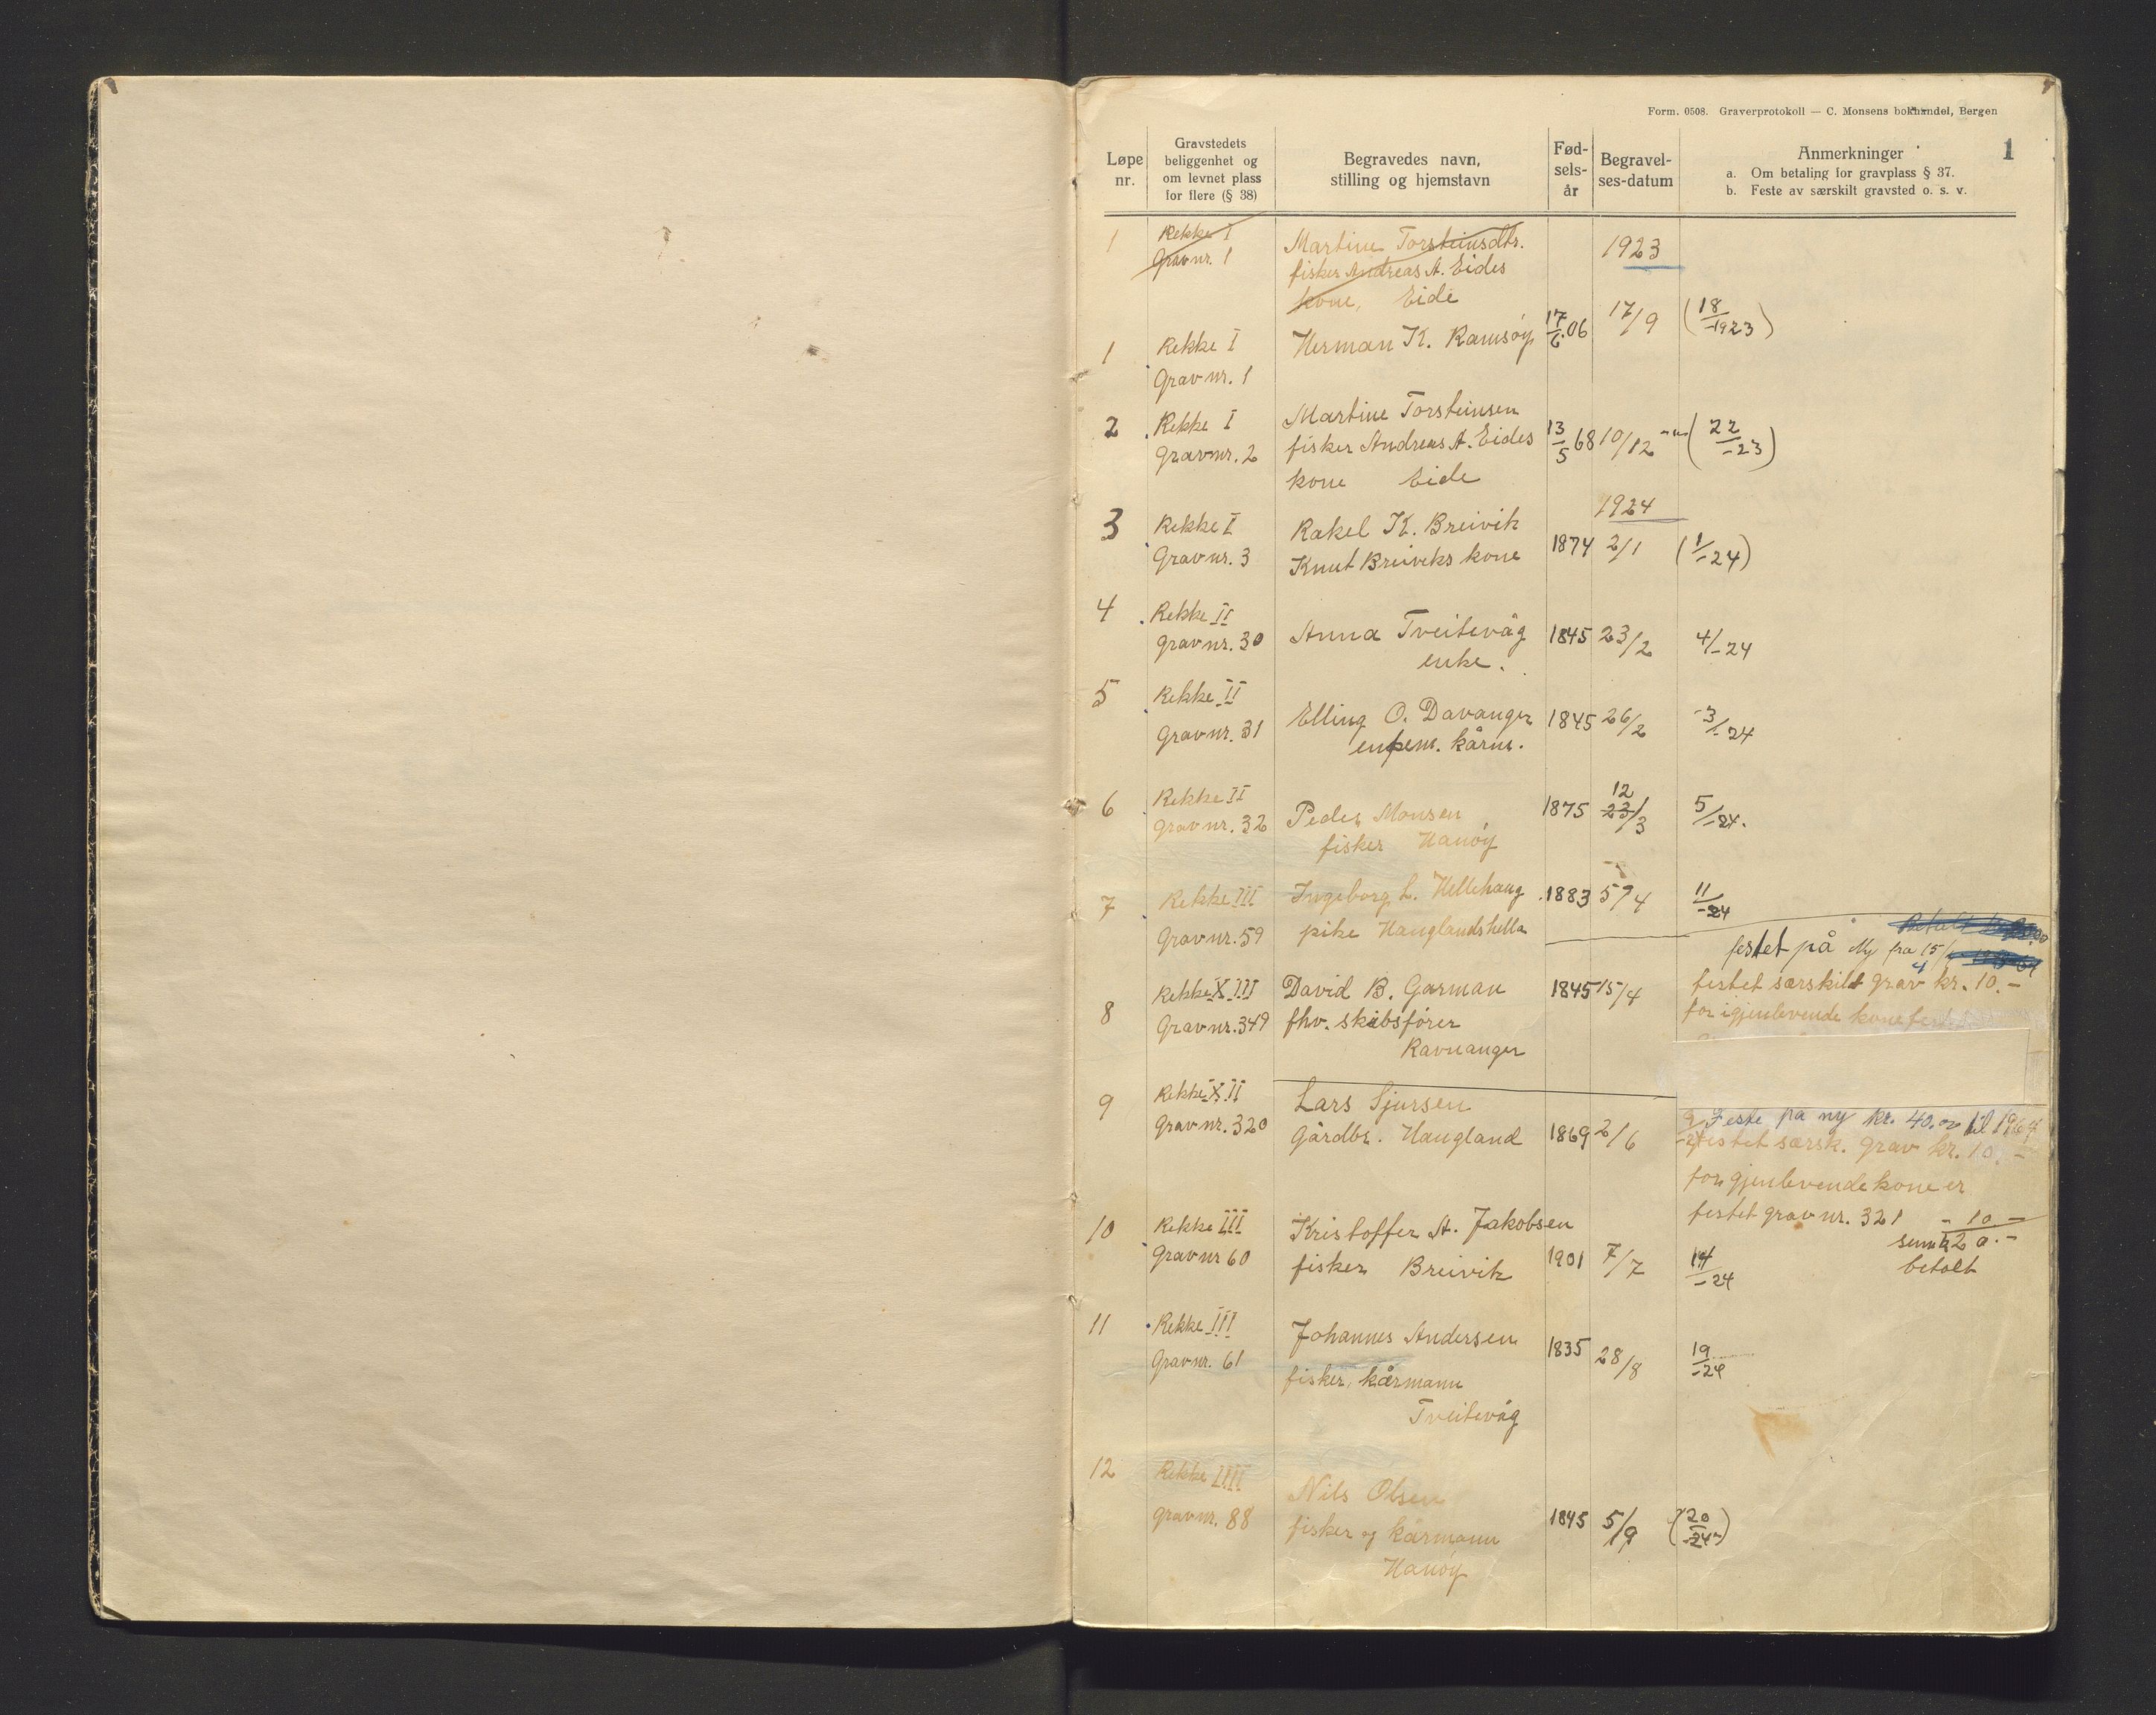 Form. 0508. Graverprotokoll — C. Monsens bokhandel, Bergen
1
Løpe nr.
Gravstedets beliggenhet og om levnet plass for flere (§ 38)
Begravedes navn, stilling og hjemstavn
Fød-sels-år
Begravel-ses-datum
Anmerkninger
a. Om betaling for gravplass § 37.
b. Feste av særskilt gravsted o. s. v.
1 Rekke I Martine Torsteinsdtr. 1923
Gravnr. 1 fisker Andreas A. Eides
kone, Eide
1 Rekke I Herman K. Ramsøy 17/6.06 17/9 (18/-1923)
Gravnr. 1
2 Rekke I Martine Torsteinsen
Gravnr. 2 fisker Andreas A. Eides 13/5 68 10/12 (22/-23)
kone Eide
1924
3 Rekke I Rakel K. Breivik
Gravnr. 3 Knut Breiviks kone 1874 2/1 (1/-24)
4 Rekke II
Gravnr. 30 Anna Tveitevåg 1845 23/2 4/-24
enke.
5 Rekke II
Gravnr. 31 Elling O. Davanger 1845 26/2 3/-24
enkem. kårm.
6 Rekke II 12
Gravnr. 32 Peder Monsen 1875 23/3 5/-24.
fisker Hanøy
7 Rekke III Ingeborg L. Hellehaug 1883 5/4 11/-24
Gravnr. 59 pike Hauglandshella
festet på Ny fra 15/4
8 Rekke XIII David B. Garman 1845 15/4 festet særskilt grav kr. 10.-
Gravnr. 349 fhv. skibsfører for igjenlevende kone
Ravnanger
9 Rekke XII Lars Sjursen Feste pa ny kr. 40.00 til 1964
Gravnr. 320 Gårdbr. Haugland 1869 2/6 festet særsk. grav kr. 10.-
for gjenlevende kone er
festet gravnr. 321 - 10 -
sum kr 20.-
betalt
10 Rekke III Kristoffer A. Jakobsen
Gravnr 60 fisker Breivik 1901 7/7 14/-24
11 Rekke III Johannes Andersen 1835 28/8 19/-24
Gravnr. 61 fisker, kårmann
Tveitevåg
12 Rekke IIII Nils Olsen
Gravnr. 88 fisker og kårmann 1845 5/9 (20/-24)
Hanøy